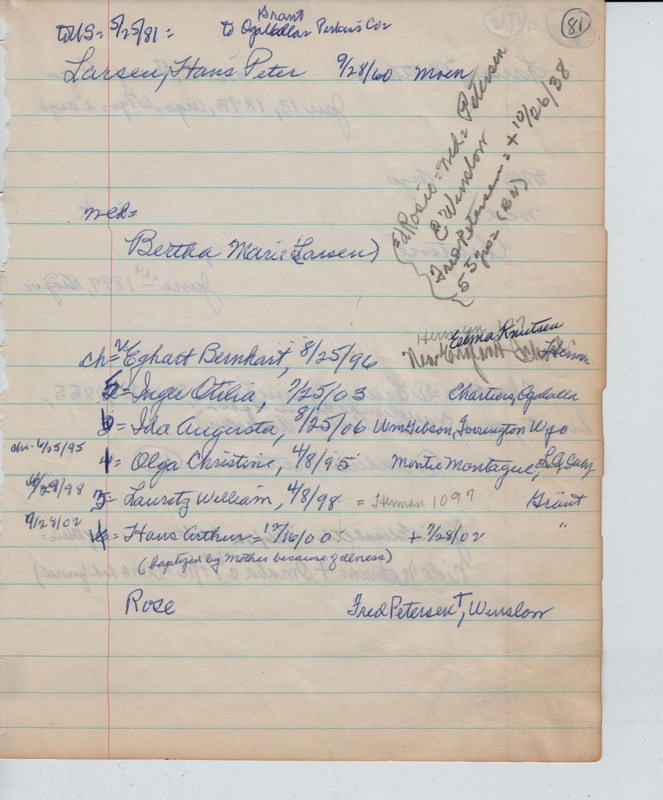 81
Grant
to US = 5/25/81 = to Ogallalla Perkins Co
Larsen, Hans Peter 9/28/60 Moen
Rosie = md = Petersen
@ Winslow
Fred Petersen = + 10/26/38
53 yrs = (BN)
md =
Bertha Marie (Larsen)
Herman 127
Telma Knutsen
ch = Eghart Bernhart, 8/25/96
5 = Inger Otilia, 7/25/03 Chartiers, Ogalalla
6 = Ida Augusta, 8/25/06 Wm Gibson, Torrington Wyo
chr. 6/25/95
1 = Olga Christine, 4/8/95 Montie Montague,
3 = Lauritz William, 4/8/98 = Herman 1097 Grant
9/28/02
4 = Hans Arthur = 12/16/00 + 7/28/02 "
(baptized by Mother because of illness)
Rose Fred Petersen †, Winslow